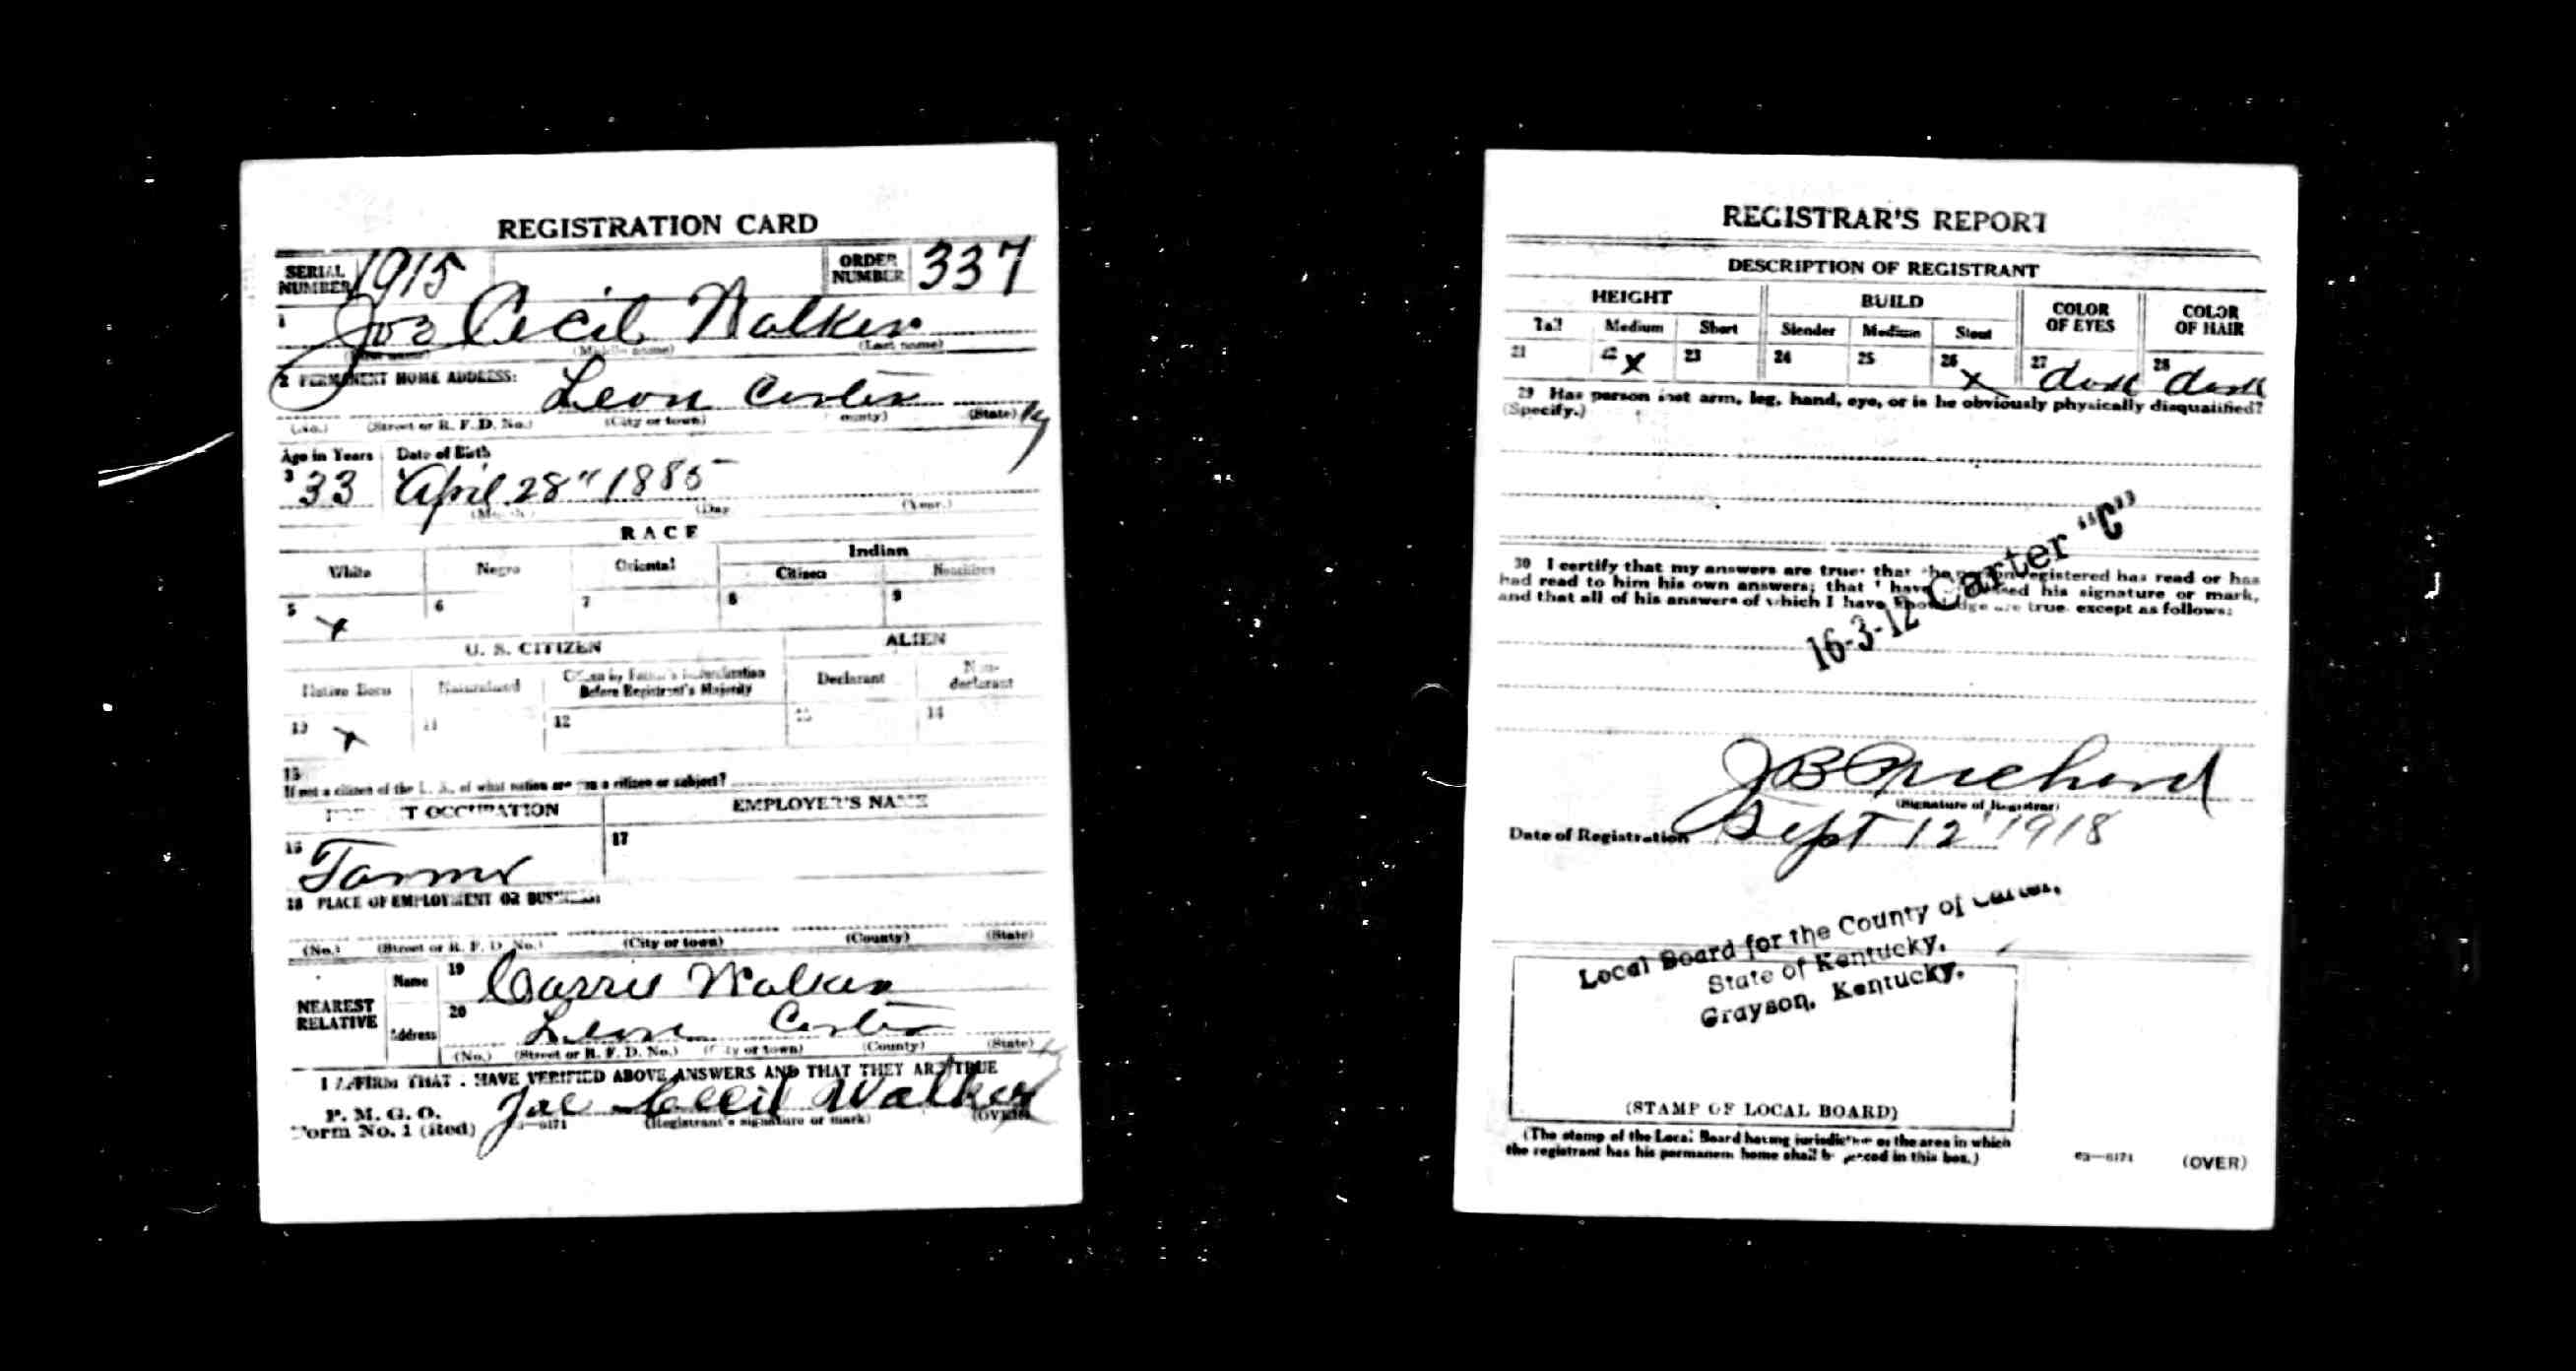 REGISTRATION CARD
SERIAL NUMBER 1915 ORDER NUMBER 337
1 Joe Cecil Walker
(Middle name) (Last name)
2 PERMANENT HOME ADDRESS: Leon Carter Ky
(No.) (Street or R. F. D. No.) (City or town) (State)
Age in Years Date of Birth
3 33 April 28" 1885
(Day (Year.)
RACE
White Negro Oriental Indian
Citizen Noncitizen
5 X 6 7 8 9
U. S. CITIZEN ALIEN
Native Born Naturalized Citizen by Father's Naturalization Before Registrant's Majority Declarant Non-declarant
10 X 11 12 13 14
15
If not a citizen of the U. S., of what nation are you a citizen or subject?
OCCUPATION EMPLOYER'S NAME
16 Farmer 17
18 PLACE OF EMPLOYMENT OR BUSINESS:
(No.) (Street or R. F. D. No.) (City or town) (County) (State)
NEAREST RELATIVE Name 19 Carrie Walker
Address 20 Leon Carter Ky
(No.) (Street or R. F. D. No.) (City or town) (County) (State)
I AFFIRM THAT I HAVE VERIFIED ABOVE ANSWERS AND THAT THEY ARE TRUE
P. M. G. O.
Form No. 1 (Red) Joe Cecil Walker
(Registrant's signature or mark) (OVER)
REGISTRAR'S REPORT
DESCRIPTION OF REGISTRANT
HEIGHT BUILD COLOR OF EYES COLOR OF HAIR
Tall Medium Short Slender Medium Stout
21 22 X 23 24 25 26 X 27 dark 28 dark
29 Has person lost arm, leg, hand, eye, or is he obviously physically disqualified?
(Specify.)
30 I certify that my answers are true; that the person registered has read or has
had read to him his own answers; that I have witnessed his signature or mark,
and that all of his answers of which I have knowledge are true, except as follows:
16-3-12 Carter "C"
J B Prichard
(Signature of Registrar)
Date of Registration Sept 12" 1918
Local Board for the County of Carter,
State of Kentucky,
Grayson, Kentucky.
(STAMP OF LOCAL BOARD)
(The stamp of the Local Board having jurisdiction of the area in which
the registrant has his permanent home shall be placed in this box.)
03—6171 (OVER)